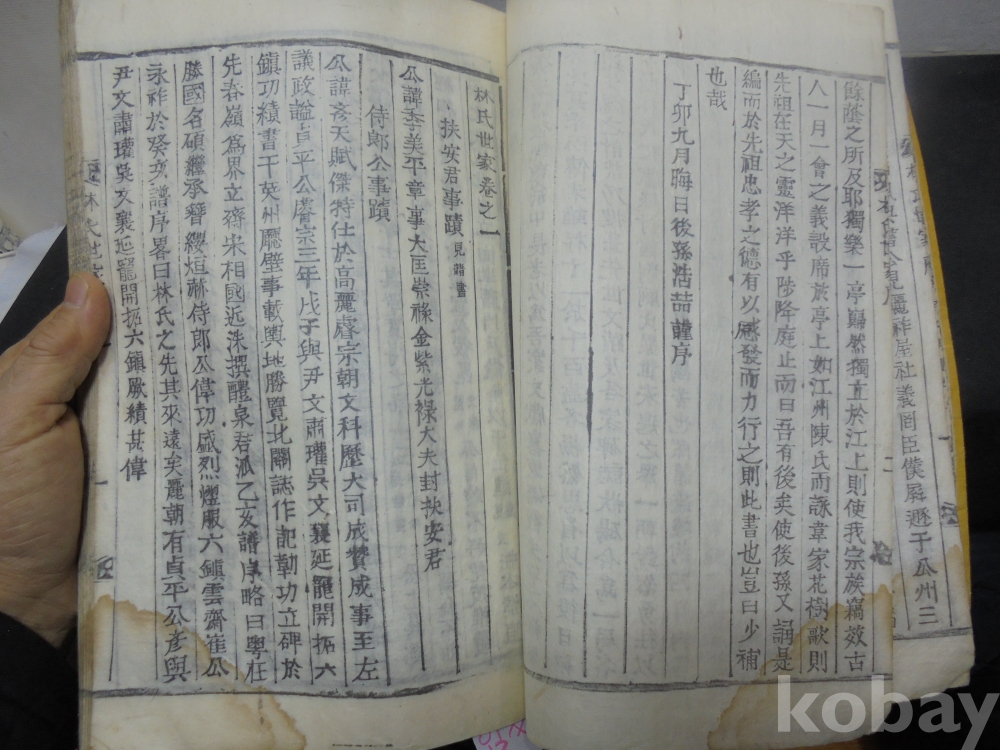 祚屋社義罔臣僕屛遯于瓜州三
餘蔭之所及耶獨樂一亭巋然獨立於江上則使我宗族竊效古
人一月一會之義設席於亭上如江州陳氏而詠韋家花樹歌則
先祖在天之靈洋洋乎陟降庭止而曰吾有後矣使後孫又誦是
編而於先祖忠孝之德有以感發而力行之則此書也豈曰少補
也哉
丁卯九月晦日後孫浩喆謹序
林氏世家卷之一
扶安君事蹟 見譜書
公諱季美平章事大匡崇祿金紫光祿大夫封扶安君
侍郎公事蹟
公諱彥天賦傑特仕於高麗睿宗朝文科歷大司成贊成事至左
議政謚貞平公睿宗三年戊子與尹文肅瓘吳文襄延寵開拓六
鎭功績書于英州廳壁事載輿地勝覽北關誌作記勒功立碑於
先春嶺爲界立齋宋相國近洙撰醴泉君派乙亥譜序略曰粤在
勝國名碩繼承簪纓烜赫侍郎公偉功盛烈燿服六鎭雲齋崔公
永祚於癸亥譜序畧曰林氏之先其來遠矣麗朝有貞平公彥與
尹文肅瓘吳文襄延寵開拓六鎭厥績甚偉
林氏世
一
kobay